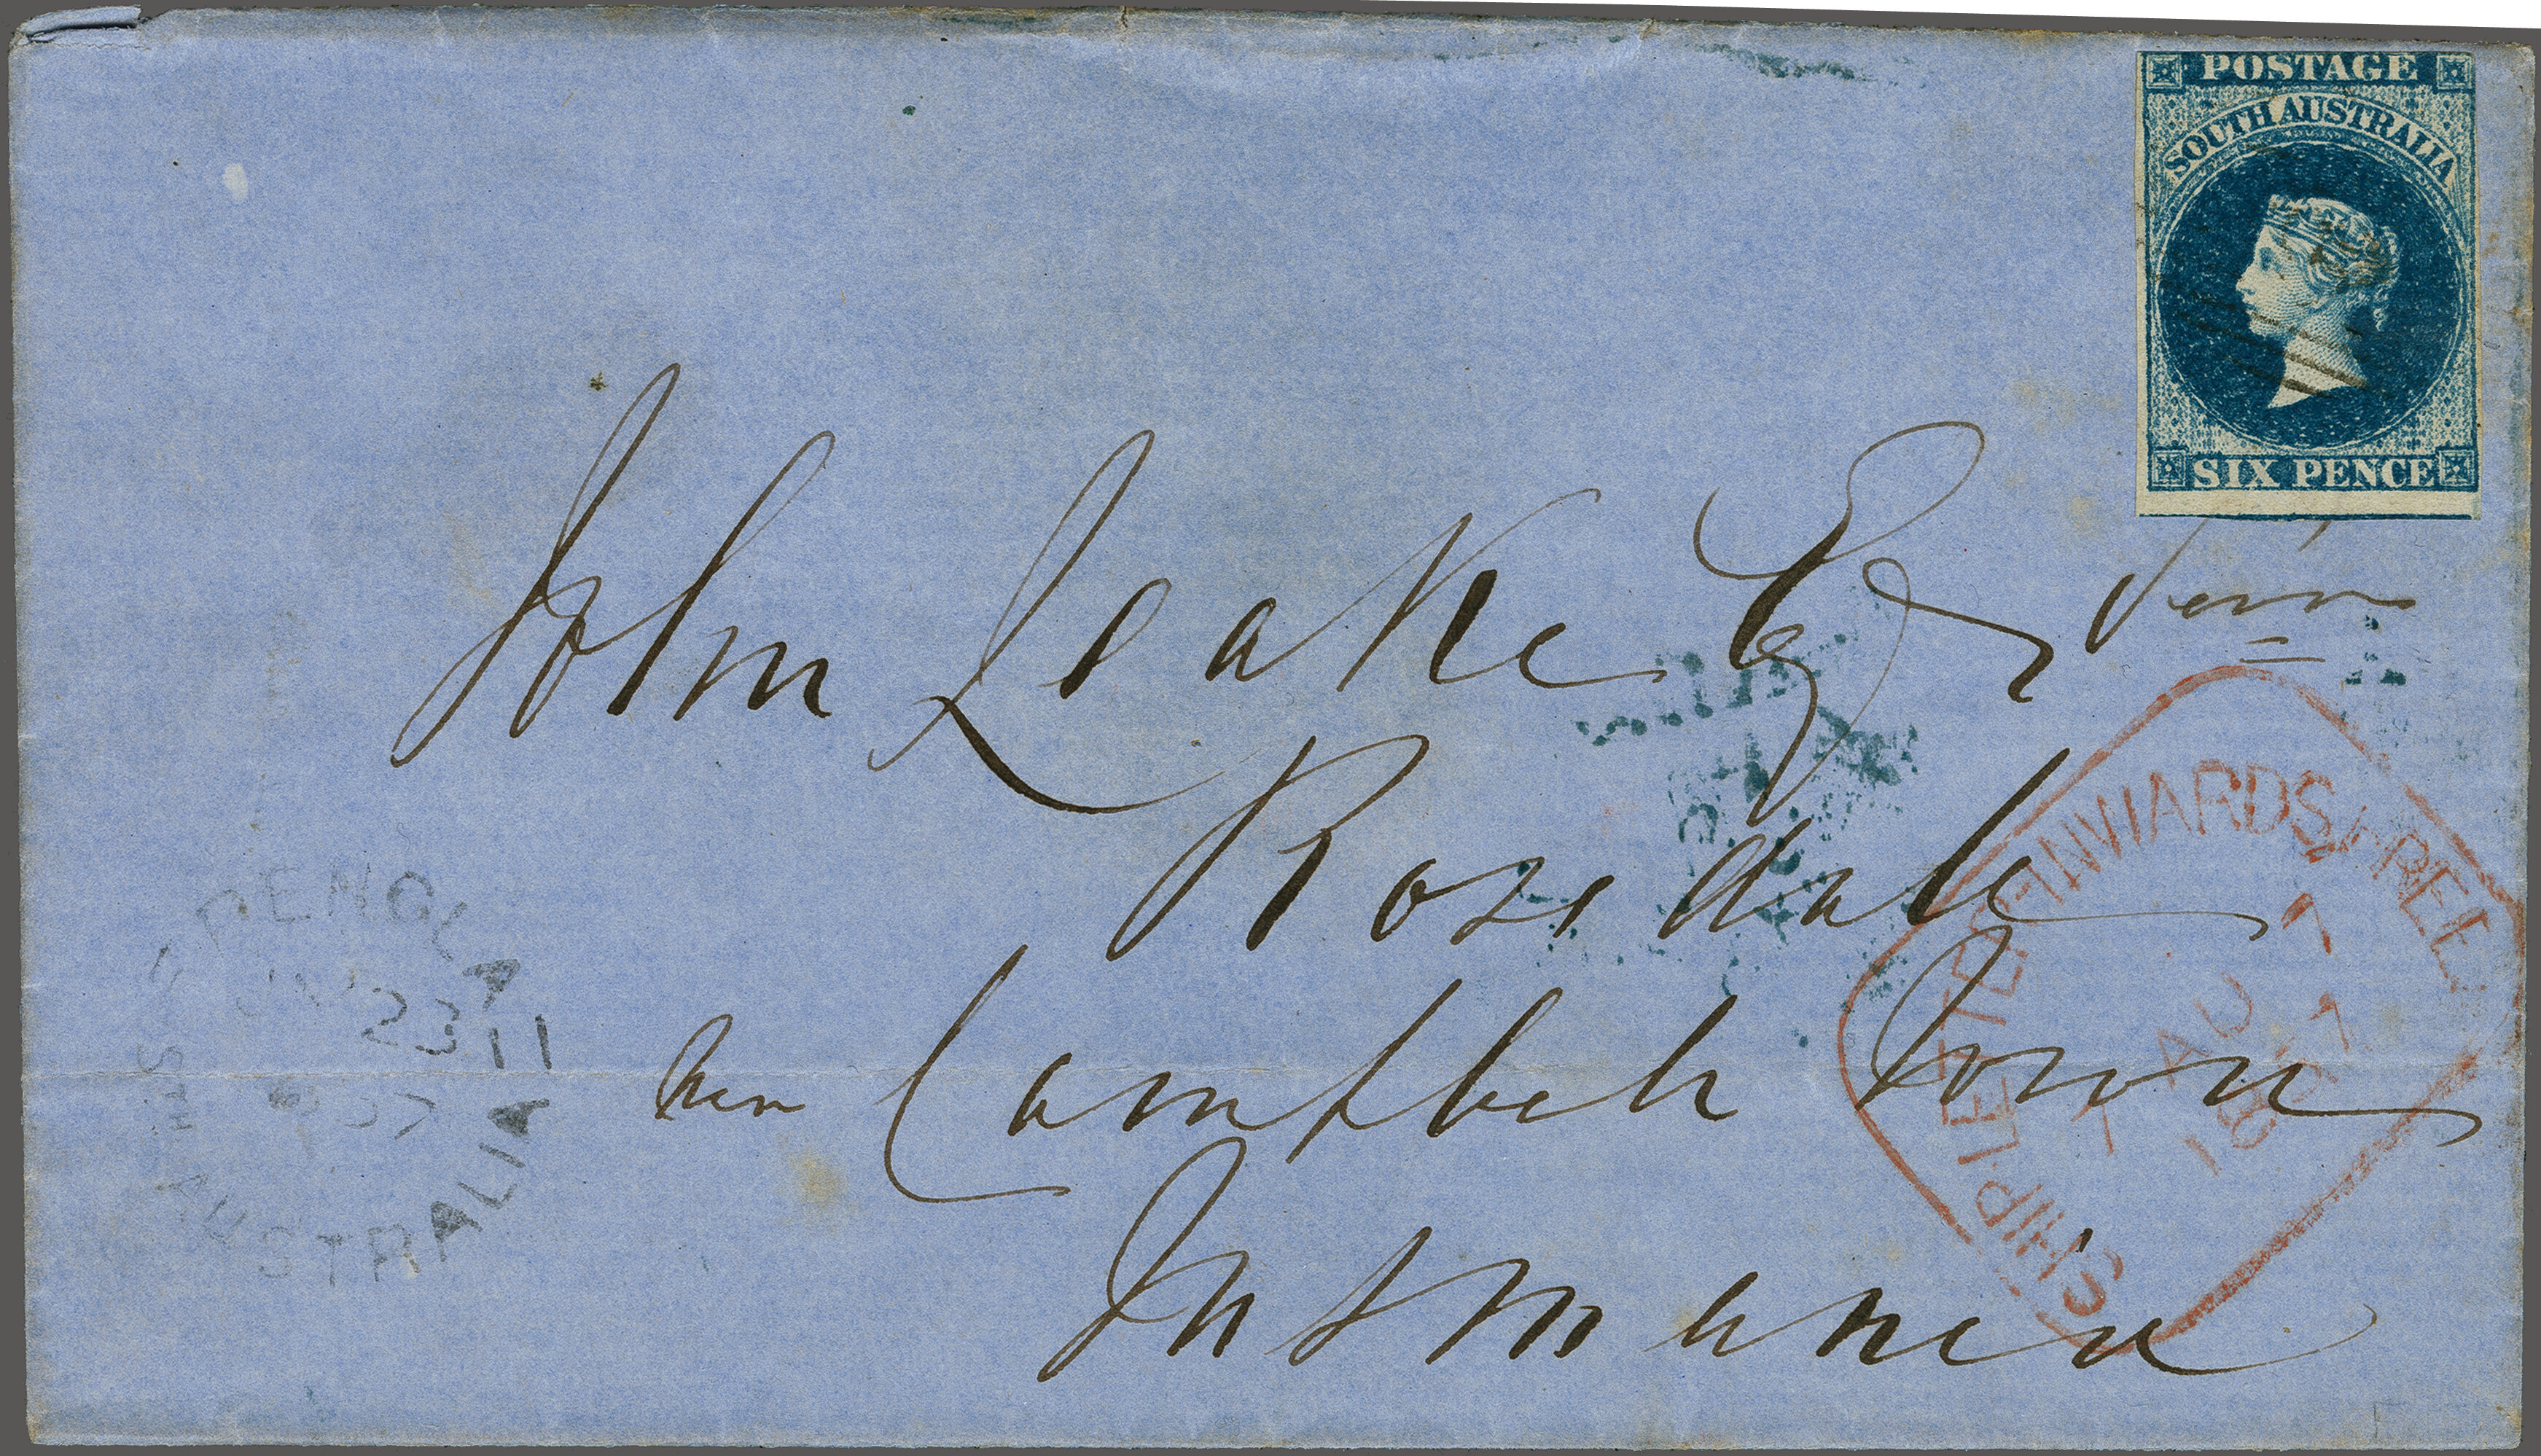 POSTAGE
SOUTH AUSTRALIA
SIX PENCE
John Leake Esqr
Rosedale
near Campbell Town
Tasmania
PENOLA
23 11
57
SOUTH AUSTRALIA
SHIP LETTER INWARDS FREE
7
7 AU 7
1857